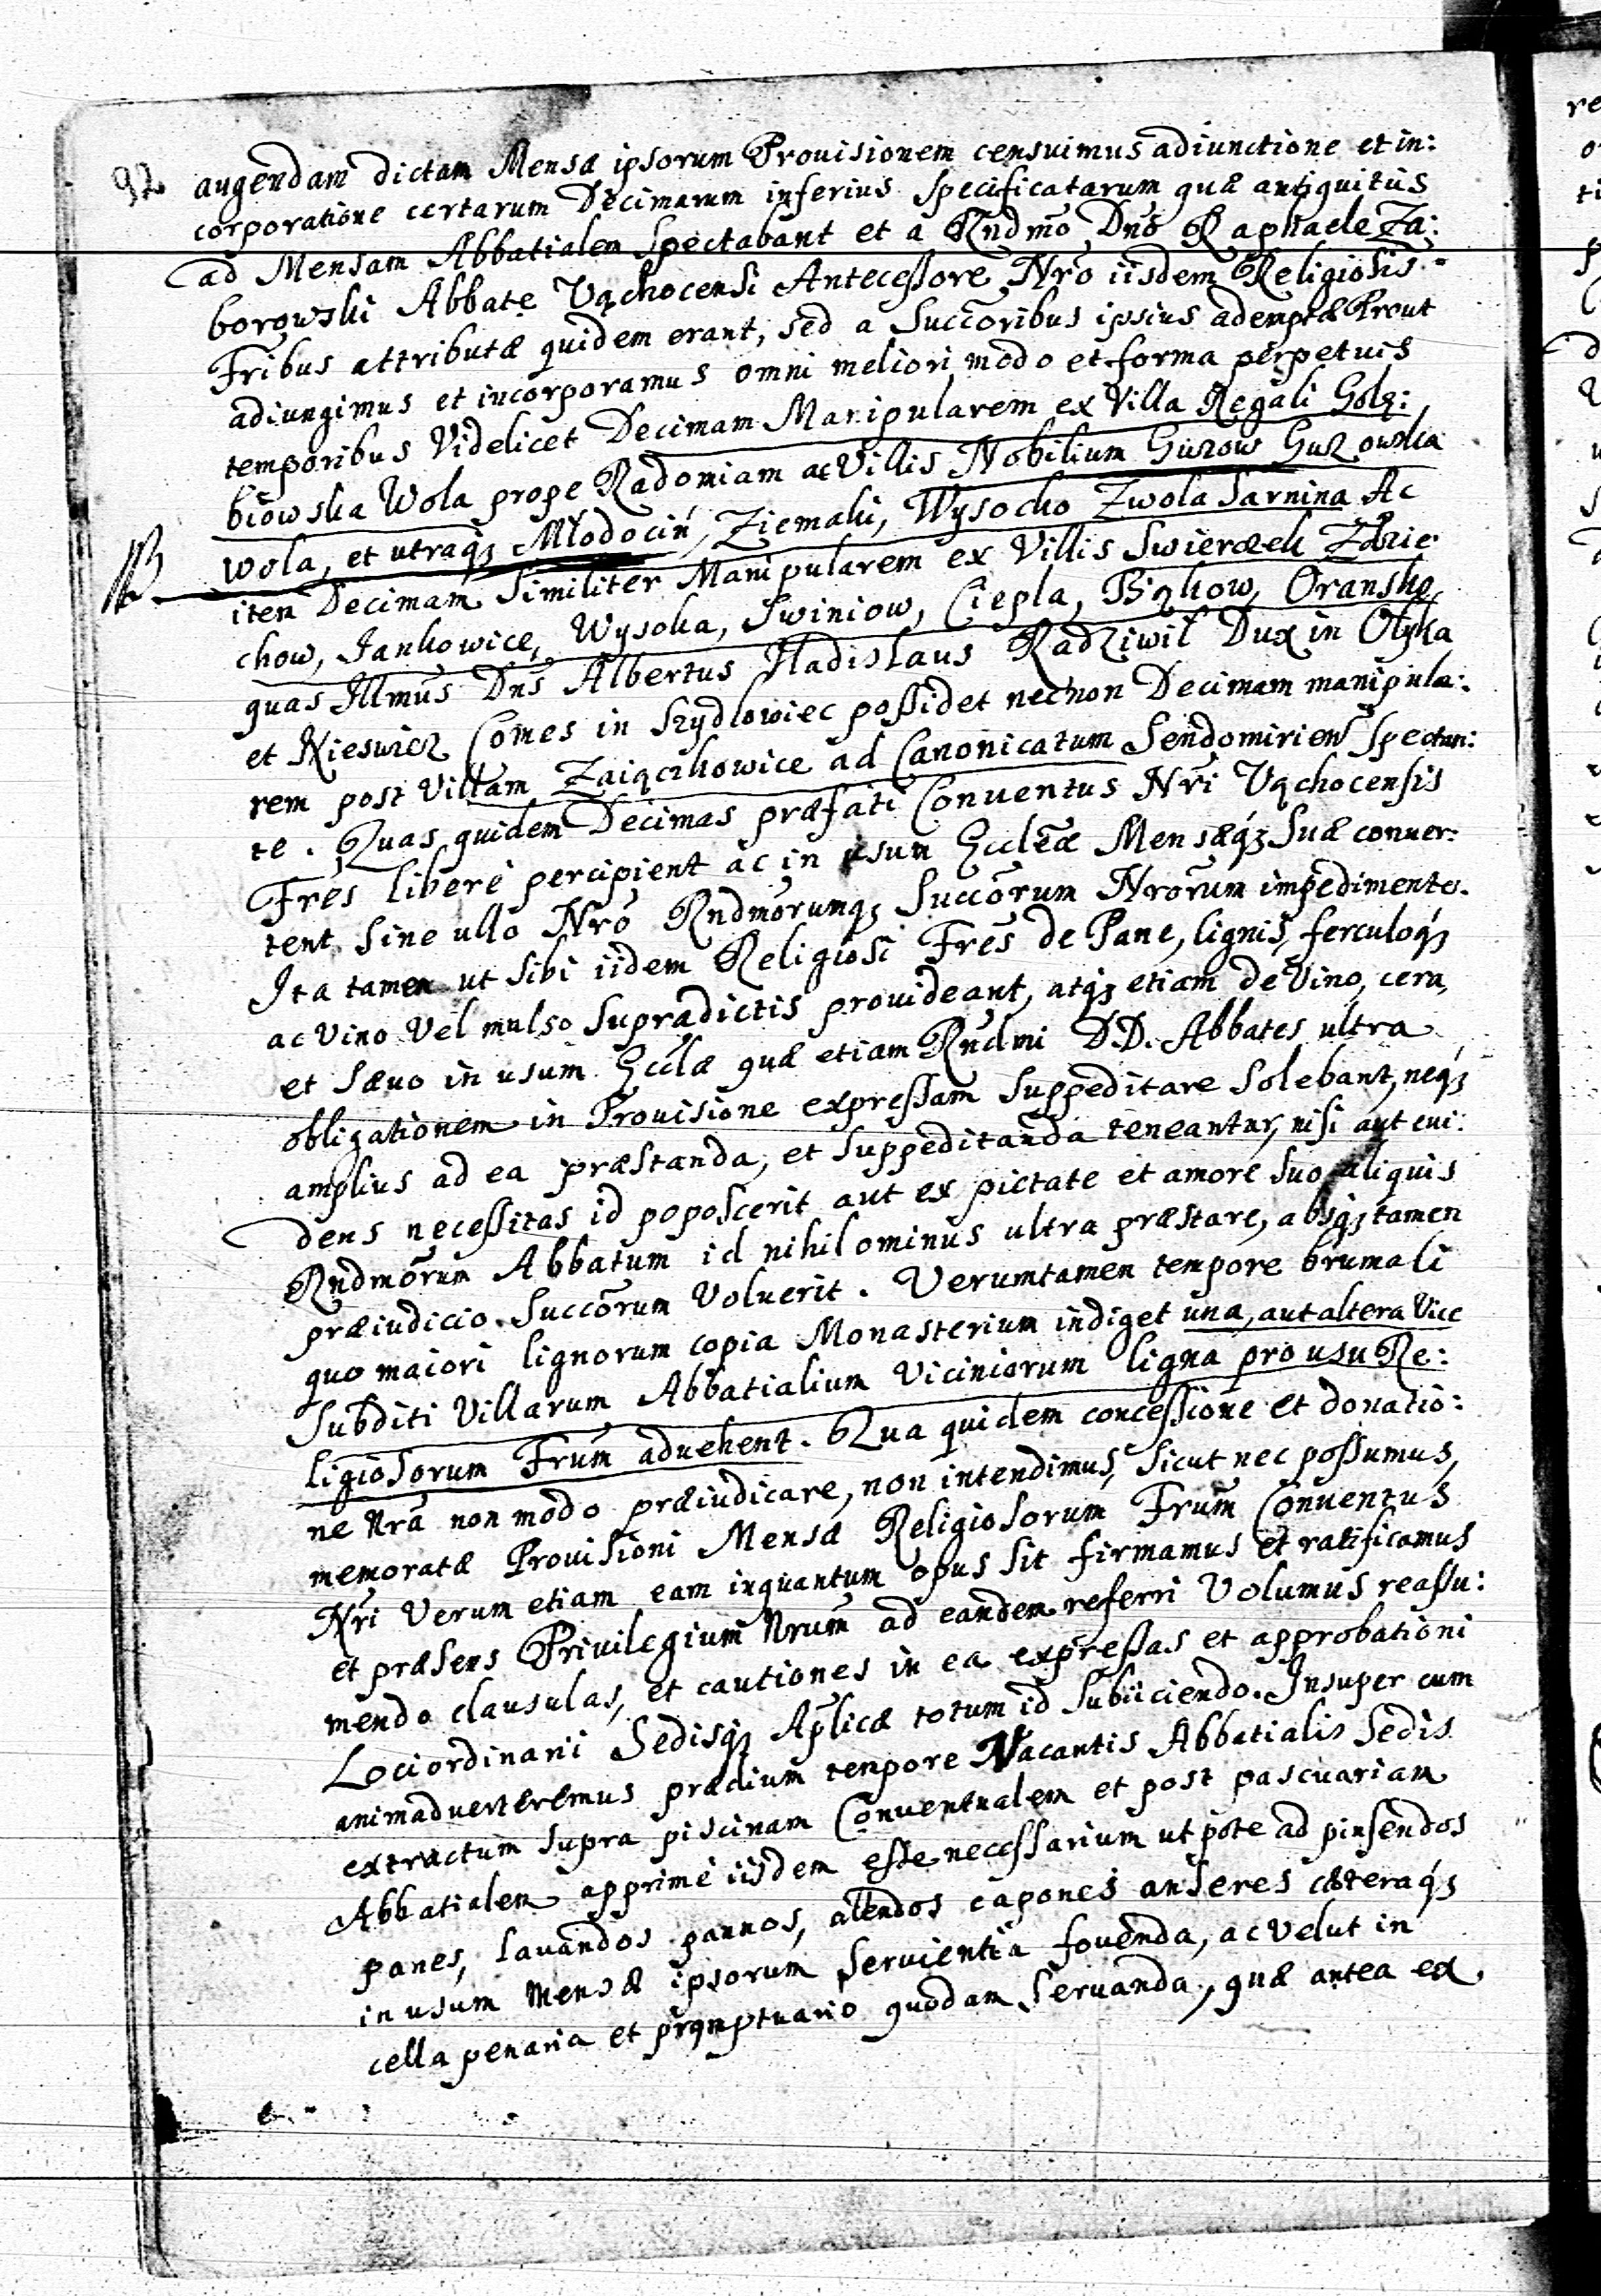 92 augendam dictam Mensæ ipsorum Prouisionem censuimus adiunctione et in:
corporatione certarum Decimarum inferius specificatarum quæ antiquitus
ad Mensam Abbatialem Spectabant et a Rndmo Dno Raphaele Za:
borowski Abbate Vąchocensi Antecessore Nro iisdem Religiosis
Fribus attributæ quidem erant, sed a Succoribus ipsius ademptæ Prout
adiungimus et incorporamus omni meliori modo et forma perpetuis
temporibus Videlicet Decimam Manipularem ex Villa Regali Golę:
biowska Wola prope Radomiam ac Villis Nobilium Guzow Guzowska
Wola, et utraqꝫ Młodocin, Ziemaki, Wysocko Zwola Sarnina Ac
iten Decimam Similiter Manipularem ex Villis Swierczek Zdzie
chow, Jankowice, Wysoka, Swiniow, Ciepla, Biąkow, Oransko,
quas Illmus Dns Albertus Vladislaus Radziwil Dux in Olyka
et Nieswiez Comes in Szydlowiec possidet necnon Decimam manipula:
rem post Villam Zaiączkowice ad Canonicatum Sendomirien Spectan:
te. Quas quidem Decimas præfati Conuentus Nri Vąchocensis
Fres libere percipient ac in usum Eccleæ Mensæqꝫ Suæ conuer:
tent Sine ullo Nro Rndmorumqꝫ Succorum Nrorum impedimento.
Ita tamen ut sibi iidem Religiosi Fres de Pane, lignis, ferculoqꝫ
ac Vino Vel mulso Supradictis prouideant, atqꝫ etiam de Vino, cera,
et Sæuo in usum Ecclæ quæ etiam Rndmi D.D. Abbates ultra
obligationem in Prouisione expressam Suppeditare Solebant, neqꝫ
amplius ad ea præstanda, et Suppeditanda teneantur, nisi aut eui:
dens necessitas id poposcerit aut ex pietate et amore suo aliquis
Rndmorum Abbatum id nihilominus ultra præstare, absqꝫ tamen
præiudicio Succorum Voluerit. Verumtamen tempore brumali
quo maiori lignorum copia Monasterium indiget una, aut altera Vice
Subditi Villarum Abbatialium Viciniorum ligna pro usu Re:
ligiosorum Frum aduehent. Qua quidem concessione et donatio:
ne Nra non modo præiudicare, non intendimus, Sicut nec possumus,
memoratæ Prouisioni Mensæ Religiosorum Frum Conuentus
Nri Verum etiam eam inquantum opus sit firmamus et ratificamus
et præsens Priuilegium Nrum ad eandem referri Volumus reassu:
mendo clausulas, et cautiones in ea expressas et approbationi
Loci ordinarii Sedisqꝫ Aplicæ totum id Subiiciendo. Insuper cum
animaduerteremus prædium tempore Vacantis Abbatialis Sedis
extructum supra piscinam Conuentualem et post pascuariam
Abbatialem apprime iisdem esse necessarium utpote ad pinsendos
panes, lauandos pannos, alendos capones anseres cæteraqꝫ
in usum Mensæ ipsorum Seruientia fouenda, ac Velut in
cella penaria et promptuario quodam Seruanda, quæ antea ex